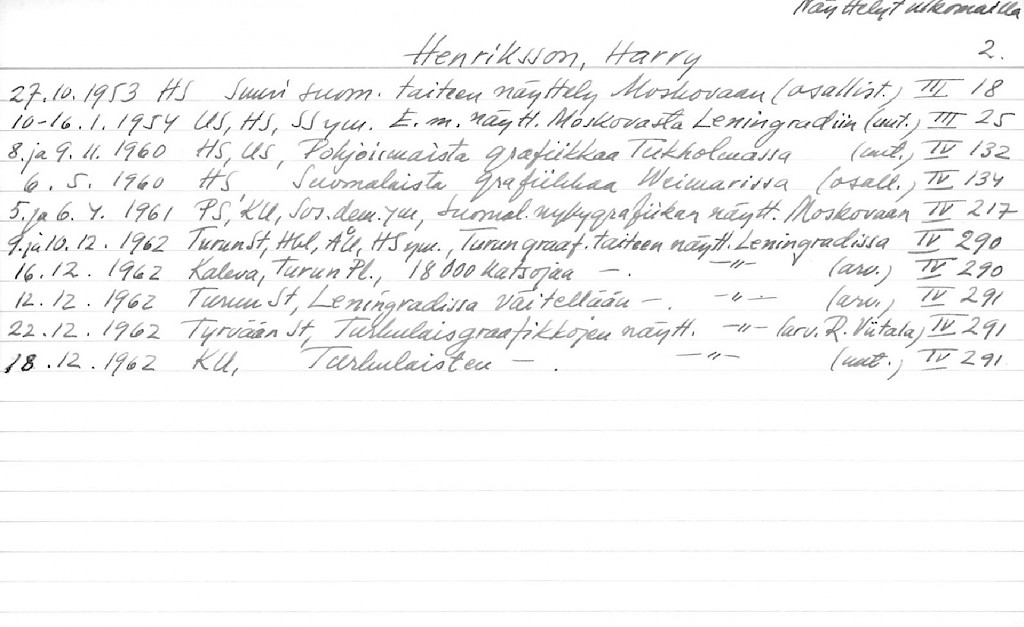 Näyttelyt ulkomailla
2.
Henriksson, Harry
27.10.1953 HS Suuri suom. taiteen näyttely Moskovaan (osallist.) III 18
10-16.1.1954 US, HS, SS ym. E.m. näytt. Moskovasta Leningradiin (mt.) III 25
8. ja 9.11.1960 HS, US, Pohjoismaista grafiikkaa Tukholmassa (mt.) IV 132
6.5.1960 HS Suomalaista grafiikkaa Weimarissa (osall.) IV 134
5. ja 6.4.1961 PS, KU, Sos.dem. ym, Suomal. nykygrafiikan näytt. Moskovaan IV 217
9. ja 10.12.1962 Turun St, Hbl, ÅU, HS ym., Turun graaf. taiteen näytt. Leningradissa IV 290
16.12.1962 Kaleva, Turun Pl., 18000 katsojaa -. -"- (arv.) IV 290
12.12.1962 Turun St, Leningradissa väitellään -. -"- (arv.) IV 291
22.12.1962 Tyrvään St, Turkulaisgraafikkojen näytt. -"- (arv. R. Viitala) IV 291
18.12.1962 KU, Turkulaisten -. -"- (mt.) IV 291